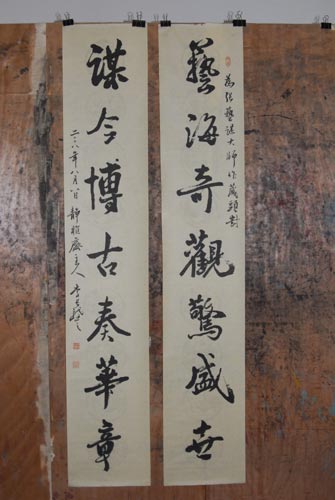 為張藝謀大師作藏頭
藝海奇觀驚盛世
謀今博古奏華章
二〇〇八年八月八日 靜雅齋主人 李